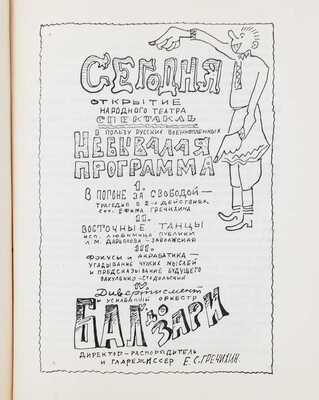 СЕГОДНЯ
ОТКРЫТИЕ
НАРОДНОГО ТЕАТРА
СПЕКТАКЛЬ
В ПОЛЬЗУ РУССКИХ ВОЕННОПЛЕННЫХ
НЕБЫВАЛАЯ
ПРОГРАММА
I.
В ПОГОНЕ ЗА СВОБОДОЙ —
ТРАГЕДИЯ В 2-Х ДЕЙСТВИЯХ,
СОЧ. ЕФИМА ГРЕЧИХИНА
II.
ВОСТОЧНЫЕ ТАНЦЫ
ИСП. ЛЮБИМИЦА ПУБЛИКИ
Л.М. ДАРЬЯЛОВА - ЗАВОЛЖСКАЯ
III.
ФОКУСЫ И АКРАБАТИКА —
УГАДЫВАНИЕ ЧУЖИХ МЫСЛЕЙ
И ПРЕДСКАЗЫВАНИЕ БУДУЩЕГО
ВАКУЛЕНКО -
IV.
ДИВЕРТИСМЕНТ
И УСИЛЕННЫЙ ОРКЕСТР
БАЛ ДО ЗАРИ
ДИРЕКТОР - РАСПОРЯДИТЕЛЬ
И ГЛАРЕЖИССЕР Е.С. ГРЕЧИХИН